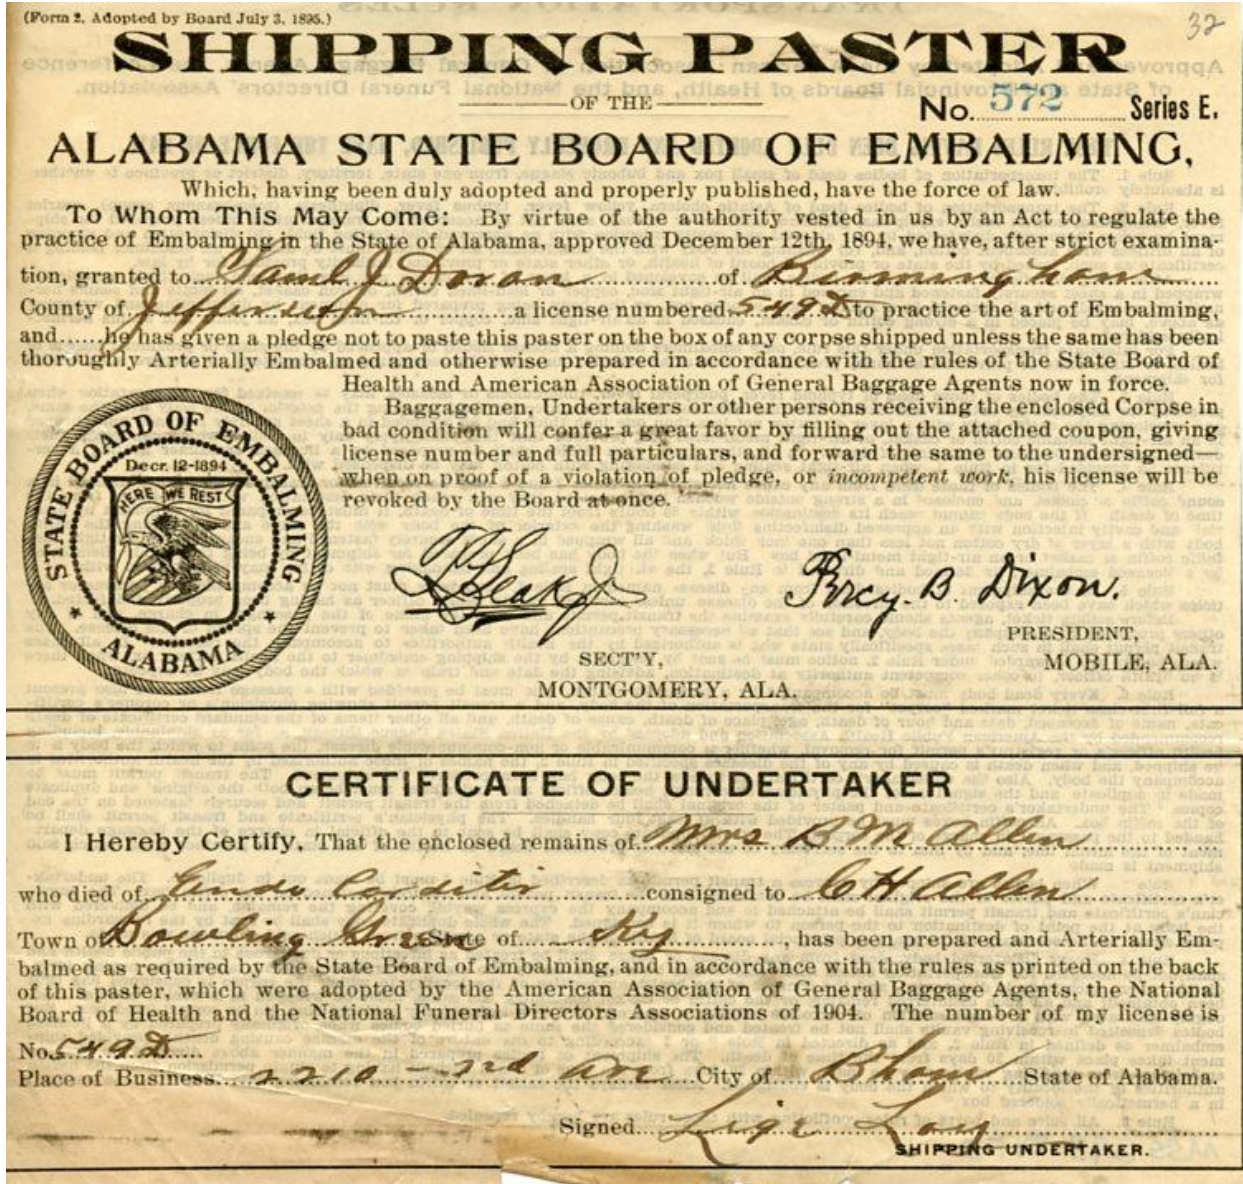 (Form 2. Adopted by Board July 3, 1895.)
32
SHIPPING PASTER
OF THE
No. 572 Series E.
ALABAMA STATE BOARD OF EMBALMING,
Which, having been duly adopted and properly published, have the force of law.
To Whom This May Come: By virtue of the authority vested in us by an Act to regulate the
practice of Embalming in the State of Alabama, approved December 12th, 1894, we have, after strict examina-
tion, granted to Saml J Doran of Birmingham
County of Jefferson a license numbered 549D to practice the art of Embalming,
and......he has given a pledge not to paste this paster on the box of any corpse shipped unless the same has been
thoroughly Arterially Embalmed and otherwise prepared in accordance with the rules of the State Board of
Health and American Association of General Baggage Agents now in force.
Baggagemen, Undertakers or other persons receiving the enclosed Corpse in
bad condition will confer a great favor by filling out the attached coupon, giving
license number and full particulars, and forward the same to the undersigned—
when on proof of a violation of pledge, or incompetent work, his license will be
revoked by the Board at once.
STATE BOARD OF EMBALMING
Decr. 12-1894
HERE WE REST
ALABAMA
Percy. B. Dixon.
PRESIDENT,
SECT'Y,
MOBILE, ALA.
MONTGOMERY, ALA.
CERTIFICATE OF UNDERTAKER
I Hereby Certify, That the enclosed remains of Mrs B M Allen
who died of Endo Carditis consigned to C H Allen
Town of Bowling Green State of Ky, has been prepared and Arterially Em-
balmed as required by the State Board of Embalming, and in accordance with the rules as printed on the back
of this paster, which were adopted by the American Association of General Baggage Agents, the National
Board of Health and the National Funeral Directors Associations of 1904. The number of my license is
No. 549D
Place of Business 2210 - 2nd Ave City of Bham State of Alabama.
Signed Lige Loy
SHIPPING UNDERTAKER.